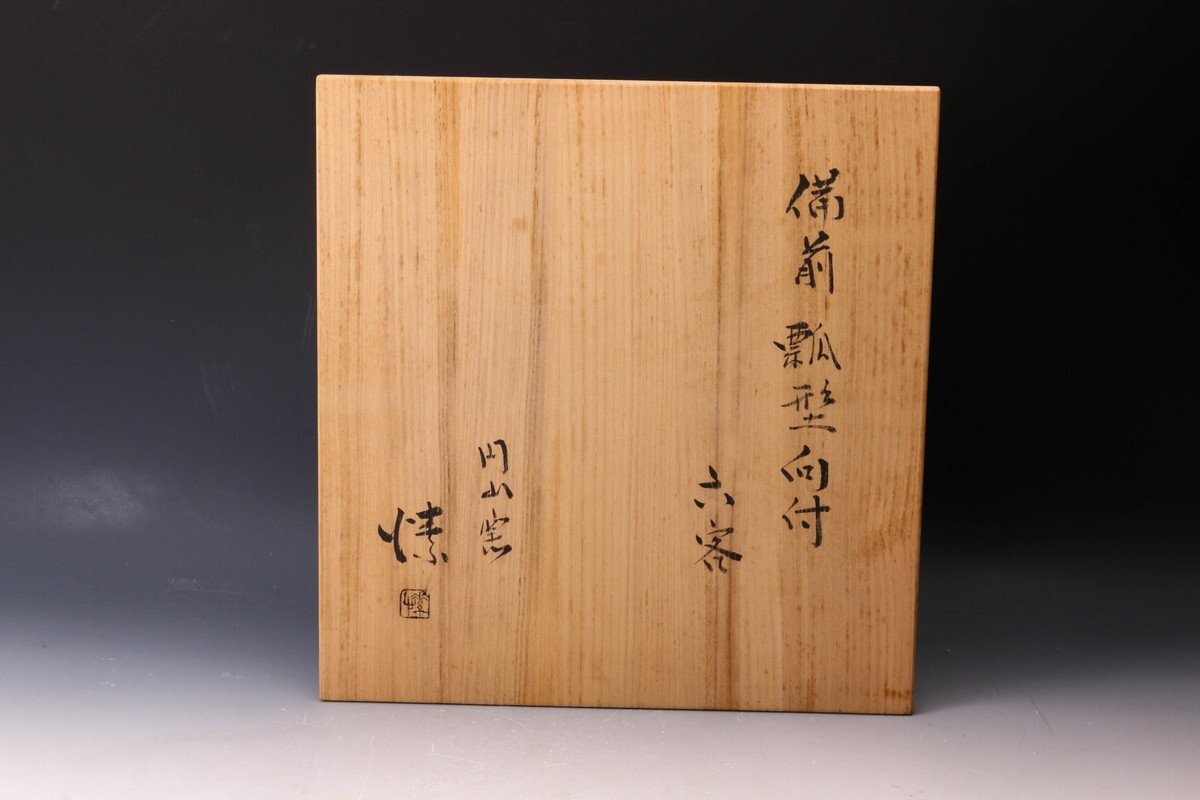 備前 瓢型向付
六客
円山窯
愫